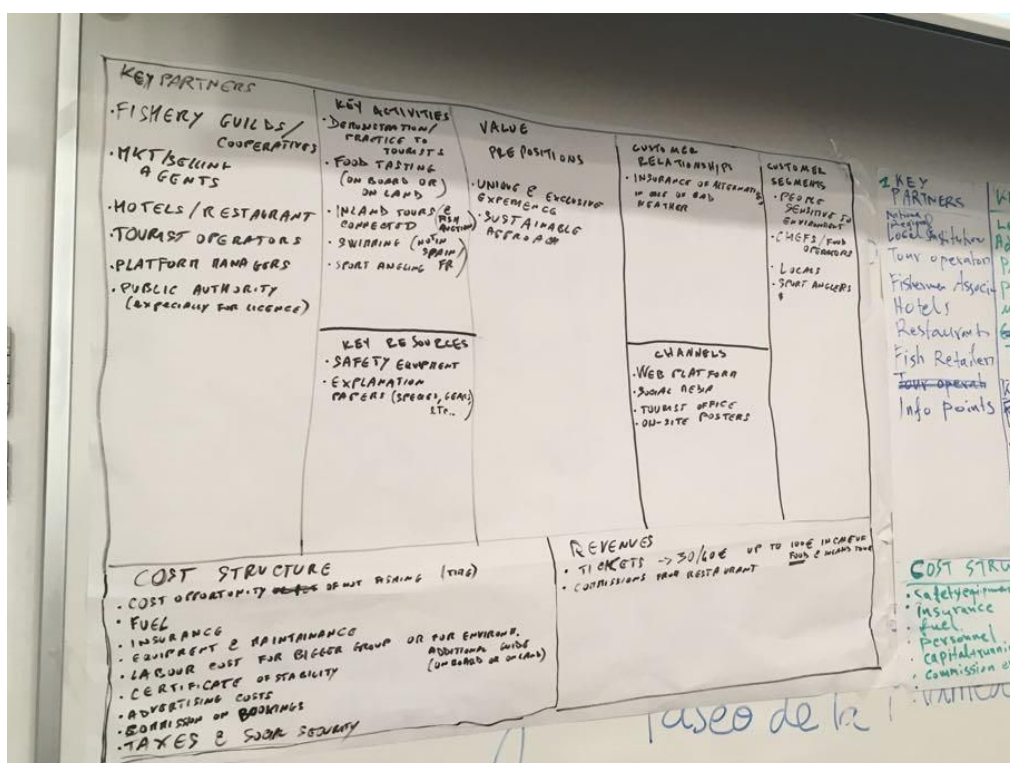 KEY PARTNERS
·FISHERY GUILDS/
COOPERATIVES
·MKT/SELLING
AGENTS
·HOTELS/RESTAURANT
·TOURIST OPERATORS
·PLATFORM MANAGERS
·PUBLIC AUTHORITY
(EXPECIALLY FOR LICENCE)
KEY ACTIVITIES
·DEMONSTRATION/
PRACTICE TO
TOURISTS
·FOOD TASTING
(ON BOARD OR)
ON LAND
·INLAND TOURS/E
CONNECTED (FISH
AUCTION)
·SWIMMING (NOT IN
SPAIN/
FR)
·SPORT ANGLING
KEY RESOURCES
·SAFETY EQUIPMENT
·EXPLANATION
PAPERS (SPECIES, GEARS
ETC..)
VALUE
PREPOSITIONS
·UNIQUE & EXCLUSIVE
EXPERIENCE
·SUSTAINABLE
APPROACH
CUSTOMER
RELATIONSHIPS
·INSURANCE OF ALTERNATIV
IN CASE OF BAD
WEATHER
CHANNELS
·WEB PLATFORM
·SOCIAL MEDIA
·TOURIST OFFICE
·ON-SITE POSTERS
CUSTOMER
SEGMENTS
·PEOPLE
SENSITIVE TO
ENVIRONMENT
·CHEFS/FOOD
OPERATORS
·LOCALS
·SPORT ANGLERS
COST STRUCTURE
·COST OPPORTUNITY OF NOT FISHING (TIME)
·FUEL
·INSURANCE
·EQUIPMENT & MAINTAINANCE
·LABOUR COST FOR BIGGER GROUP OR FOR ENVIRONM.
ADDITIONAL GUIDE
(ON BOARD OR ON LAND)
·CERTIFICATE OF STABILITY
·ADVERTISING COSTS
·COMMISSION ON BOOKINGS
·TAXES & SOCIAL SECURITY
REVENUES
·TICKETS -> 30/40€ UP TO 100€ IN CASE OF
FOOD & INLAND TOUR
·COMMISSIONS FROM RESTAURANT
1 KEY
PARTNERS
Local Institution
Tour operators
Fishermen Associ
Hotels
Restaurants
Fish Retailers
Tour operat
Info points
COST STRU
·Safety equipmen
·insurance
·fuel
·personnel
·capital+runni
·commission
Paseo de la